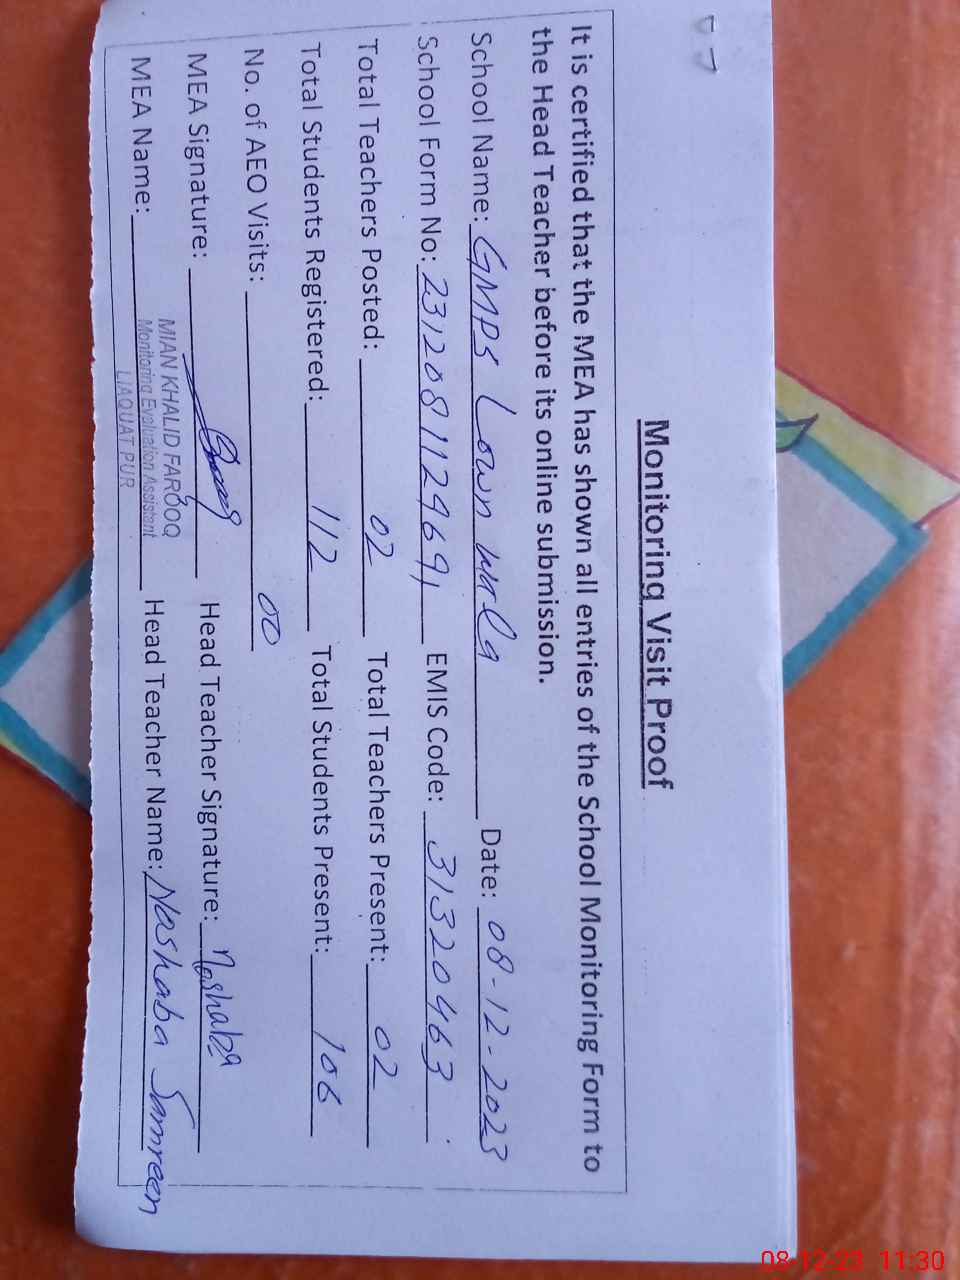 Monitoring Visit Proof
It is certified that the MEA has shown all entries of the School Monitoring Form to
the Head Teacher before its online submission.
School Name: GMPS Lown wala Date: 08-12-2023
School Form No: 23120811294691 EMIS Code: 31320463
Total Teachers Posted: 02 Total Teachers Present: 02
Total Students Registered: 112 Total Students Present: 106
No. of AEO Visits: 00
MEA Signature: Head Teacher Signature: Noshaba
MIAN KHALID FAROOQ
MEA Name: Monitoring Evaluation Assistant Head Teacher Name: Noshaba Samreen
LIAQUAT PUR
08-12-23 11:30